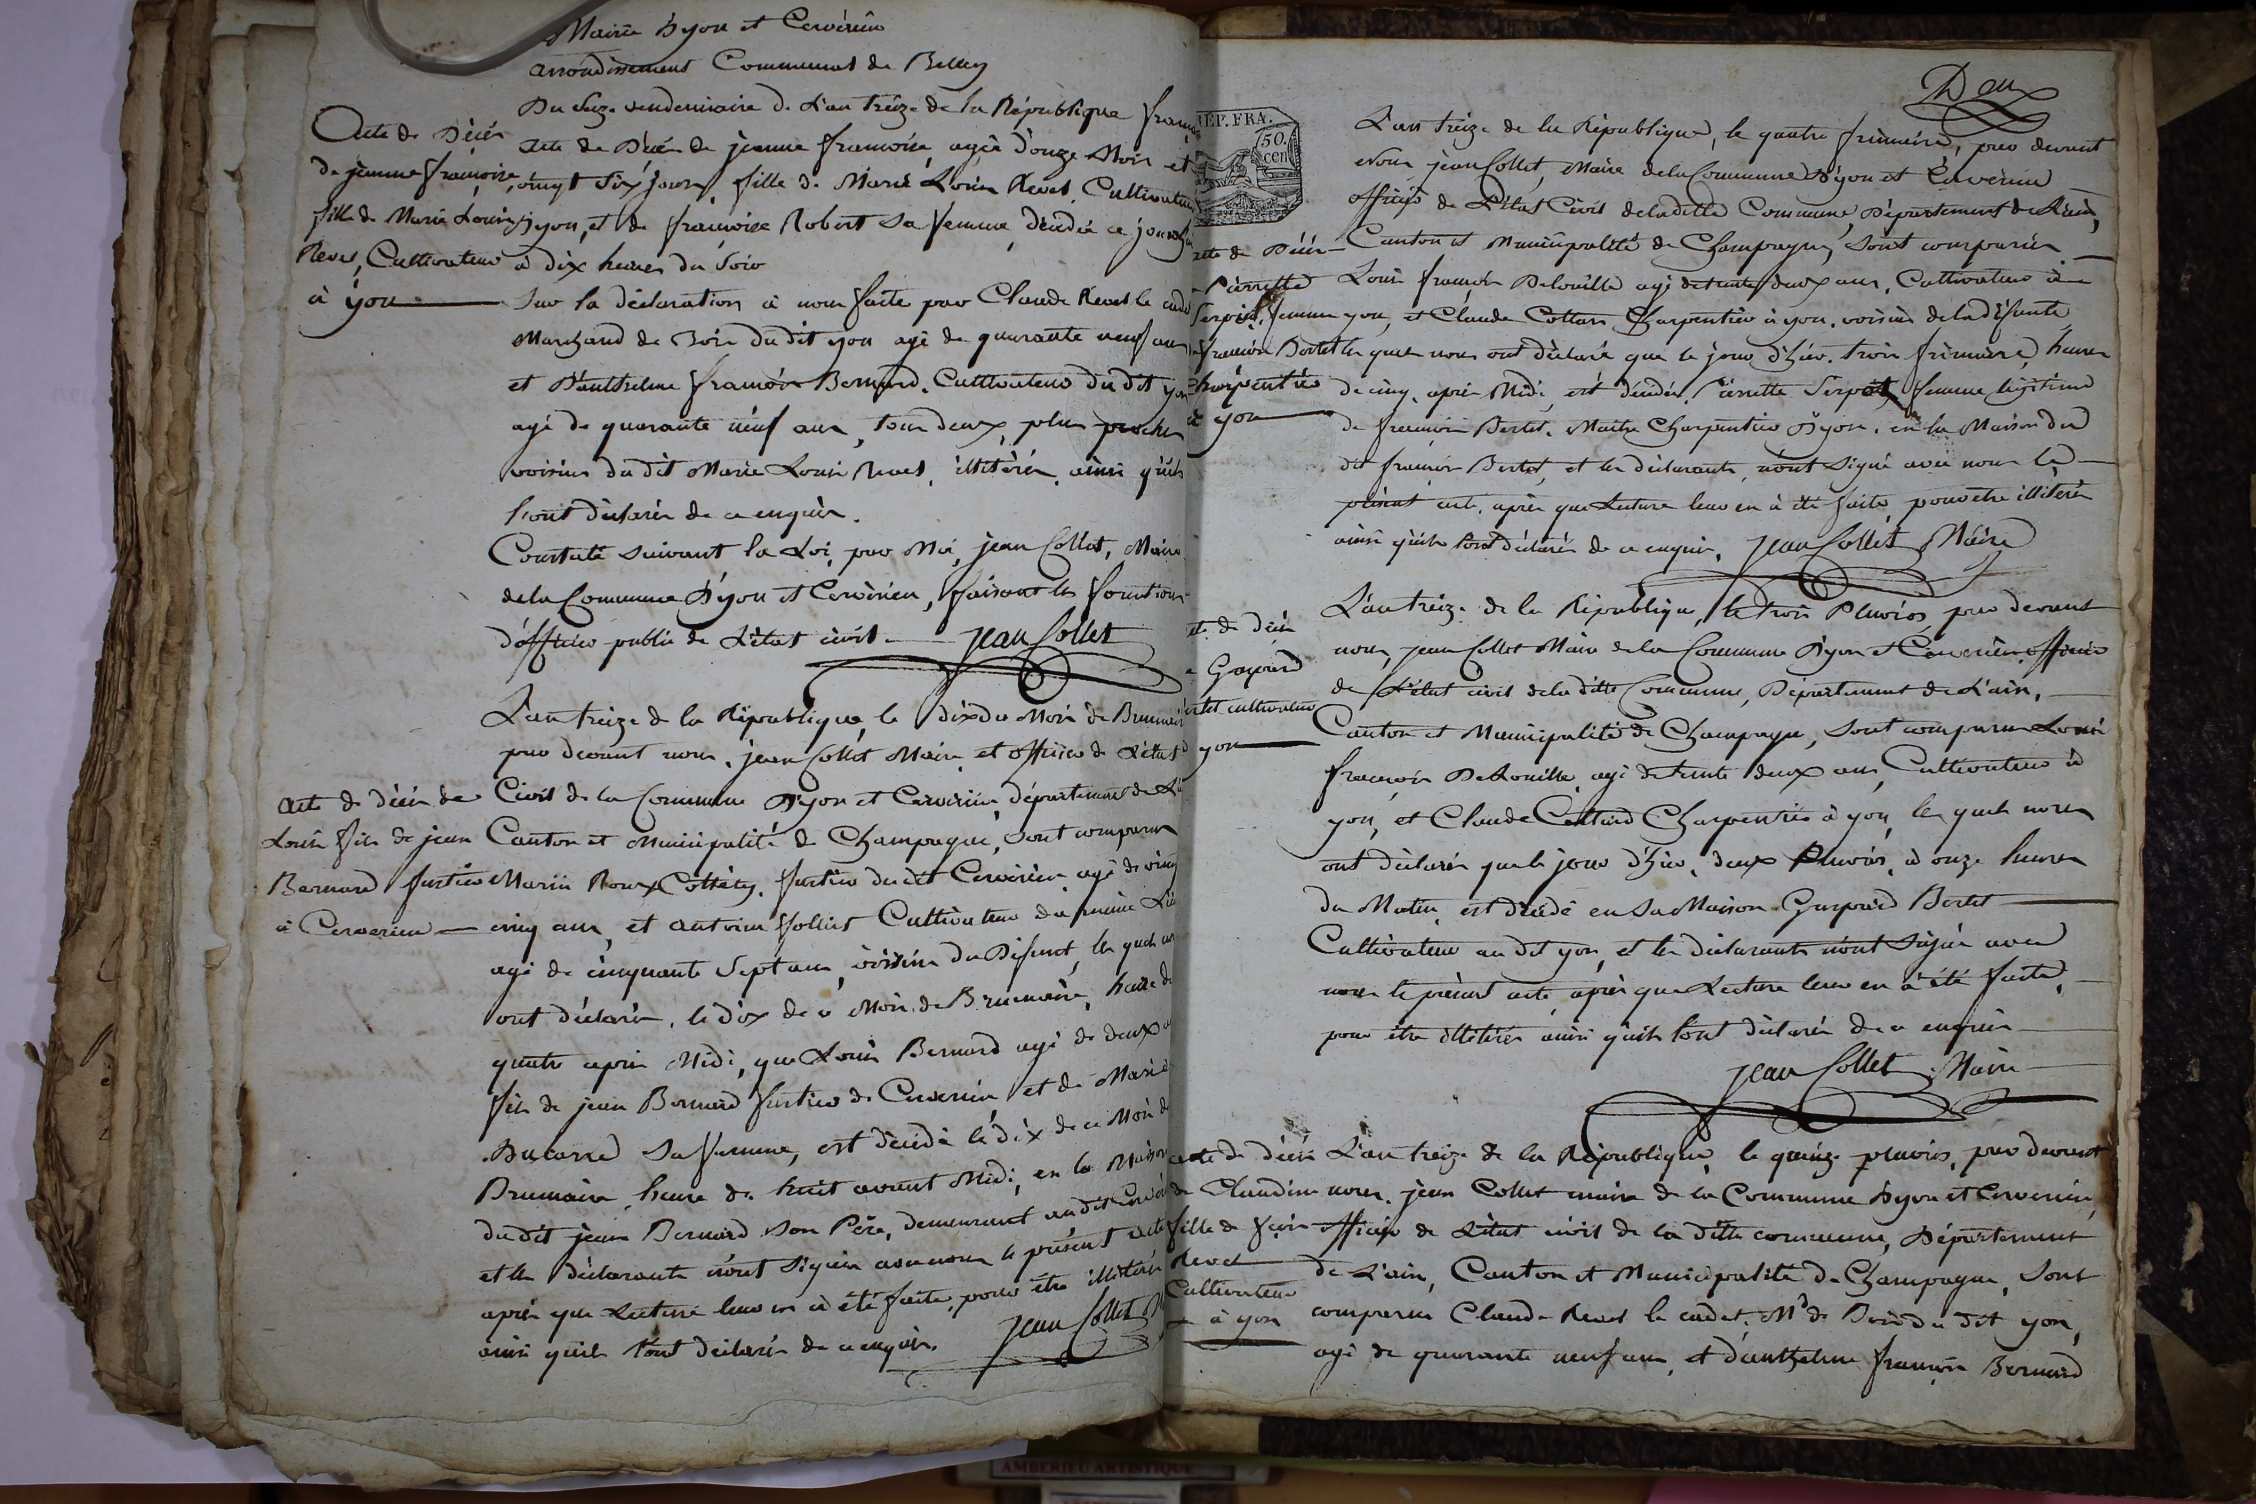 Mairie d'yon et Cervérieu
arrondissement Communal de Belley
Du Seize vendemiaire de L'an treize de la République française
Acte de Décés
de jeanne françoise
fille de Marie Louis
Revet, Cultivateur
à yon
Acte de Décés de jeanne françoise, agée d'onze Mois et
vingt Six jours, fille de Marie Louis Revet, Cultivateur
d'yon, et de françoise Robert sa femme, décédée ce jourd'hui
à dix heures du Soir
Sur la déclaration à nous faite par Claude Revet le cadet
Marchand de Bois du dit yon agé de quarante neuf ans
et D'anthelme françois Bernard, Cultivateur du dit yon
agé de quarante neuf ans, tous deux, plus proches
voisins du dit Marie Louis Revet, illitérés, ainsi qu'ils
l'ont déclarés de ce enquis.
Constaté suivant la Loi, par Moi, jean Collet, Maire
de la Commune D'yon et Cervérieu, faisant les fonctions
d'officier public de L'état civil. jean Collet
L'an treize de la République, le dix du Mois de Brumaire
par devant nous, jean Collet Maire et officier de L'état
acte de décés de
Louis fils de jean
Bernard
à Cerverieu
Civil de la Commune D'yon et Cervérieu, département de L'ain
Canton et Municipalité de Champagne, sont comparus
Marin Roux du dit Cervérieu agé de vingt
cinq ans, et antoine follict Cultivateur du même Lieu
agé de cinquante Sept ans, voisins du Défunt, les quels nous
ont déclarés, le dix de ce Mois de Brumaire, heure de
quatre après Midi, que Louis Bernard agé de deux ans
fils de jean Bernard de Cerverieu et de Marie
sa femme, est décédé le dix de ce Mois de
Brumaire, heure de huit avant Midi, en la Maison
du dit jean Bernard son Père, demeurant au dit Cerverieu
et les déclarants n'ont signés avec nous le présent acte
après que Lecture leur en à été faite, pour être illitérés
ainsi qu'ils l'ont déclarés de ce enquis. jean Collet M
Deux
REP. FRA.
50.
cen
L'an treize de la République, le quatre frimaire, par devant
nous jean Collet, Maire de la Commune D'yon et Cerverieu
officier de L'état Civil de la ditte Commune, Département de L'ain,
Acte de Décés
de Pierrette
femme
de françois Bertet
charpentier
à yon
Canton et Municipalité de Champagne, sont comparus
Louis françois Delouille agé de trente deux ans, Cultivateur à
yon, et Claude Charpentier à yon, voisins de la Défunte,
les quels nous ont déclaré que le jour d'hier, trois frimaire, heure
de cinq, après Midi, est décédée, Pierrette femme légitime
de françois Bertet, Maitre Charpentier D'yon, en la Maison du
dit françois Bertet, et les déclarants, n'ont signé avec nous le
présent acte, après que Lecture leur en à été faite, pour etre illiterés
ainsi qu'ils l'ont déclarés de ce enquis. jean Collet Maire
L'an treize de la République, le trois Pluviôs, par devant
acte de décés
de Gaspard
Bertet cultivateur
à yon
nous, jean Collet Maire de la Commune D'yon et Cerverieu, officier
de L'état civil de la ditte Commune, Département de L'ain,
Canton et Municipalité de Champagne, sont comparus Louis
françois Delouille, agé de trente deux ans, Cultivateur à
yon, et Claude Charpentier à yon, les quels nous
ont déclarés que le jour d'hier, deux Pluviôs, à onze heures
du Matin, est décédé en sa Maison Gaspard Bertet
Cultivateur au dit yon, et les déclarants n'ont signés avec
nous le présent acte, après que Lecture leur en à été faite,
pour être illitérés ainsi qu'ils l'ont déclarés de ce enquis
jean Collet Maire
acte de décés
de Claudine
fille de
Revet
Cultivateur
à yon
L'an treize de la République, le quinze pluviôs, par devant
nous, jean Collet maire de la Commune D'yon et Cerverieu,
officier de L'état civil de la ditte commune, Département
de L'ain, Canton et Municipalité de Champagne, sont
comparus Claude Revet le cadet, Md de Bois du dit yon,
agé de quarante neuf ans, et d'anthelme françois Bernard
AMBERIEU ARTISTIQUE